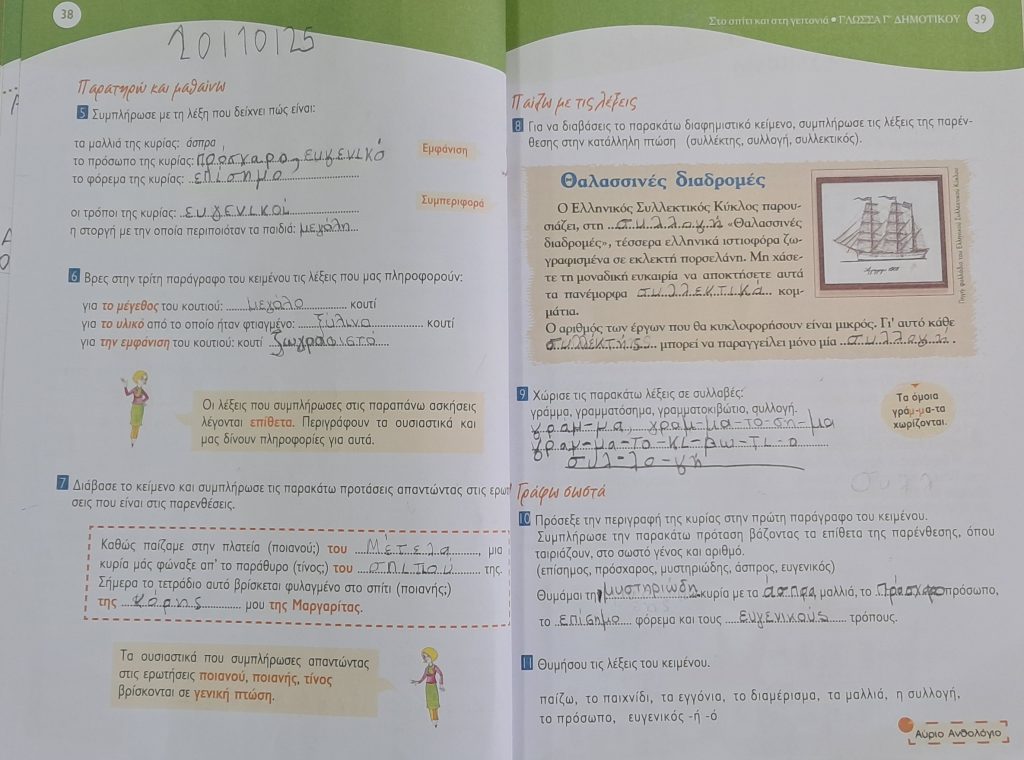 38
20/10/25
Παρατηρώ και μαθαίνω
5 Συμπλήρωσε με τη λέξη που δείχνει πώς είναι:
τα μαλλιά της κυρίας: άσπρα
το πρόσωπο της κυρίας: πρόσχαρο, ευγενικό
Εμφάνιση
το φόρεμα της κυρίας: επίσημο
οι τρόποι της κυρίας: ευγενικοί
Συμπεριφορά
η στοργή με την οποία περιποιόταν τα παιδιά: μεγάλη
6 Βρες στην τρίτη παράγραφο του κειμένου τις λέξεις που μας πληροφορούν:
για το μέγεθος του κουτιού: μεγάλο κουτί
για το υλικό από το οποίο ήταν φτιαγμένο: ξύλινο κουτί
για την εμφάνιση του κουτιού: κουτί ζωγραφιστό
Οι λέξεις που συμπλήρωσες στις παραπάνω ασκήσεις
λέγονται επίθετα. Περιγράφουν τα ουσιαστικά και
μας δίνουν πληροφορίες για αυτά.
7 Διάβασε το κείμενο και συμπλήρωσε τις παρακάτω προτάσεις απαντώντας στις ερωτ
σεις που είναι στις παρενθέσεις.
Καθώς παίζαμε στην πλατεία (ποιανού;) του Μετελα, μια
κυρία μάς φώναξε απ' το παράθυρο (τίνος;) του σπιτιού της.
Σήμερα το τετράδιο αυτό βρίσκεται φυλαγμένο στο σπίτι (ποιανής;)
της κόρης μου της Μαργαρίτας.
Τα ουσιαστικά που συμπλήρωσες απαντώντας
στις ερωτήσεις ποιανού, ποιανής, τίνος
βρίσκονται σε γενική πτώση.
Στο σπίτι και στη γειτονιά • ΓΛΩΣΣΑ Γ΄ ΔΗΜΟΤΙΚΟΥ 39
Παίζω με τις λέξεις
8 Για να διαβάσεις το παρακάτω διαφημιστικό κείμενο, συμπλήρωσε τις λέξεις της παρέν-
θεσης στην κατάλληλη πτώση (συλλέκτης, συλλογή, συλλεκτικός).
Θαλασσινές διαδρομές
Ο Ελληνικός Συλλεκτικός Κύκλος παρου-
σιάζει, στη συλλογή «Θαλασσινές
διαδρομές», τέσσερα ελληνικά ιστιοφόρα ζω-
γραφισμένα σε εκλεκτή πορσελάνη. Μη χάσε-
τε τη μοναδική ευκαιρία να αποκτήσετε αυτά
τα πανέμορφα συλλεκτικά κομ-
μάτια.
Ο αριθμός των έργων που θα κυκλοφορήσουν είναι μικρός. Γι' αυτό κάθε
συλλεκτής μπορεί να παραγγείλει μόνο μία συλλογή.
Πηγή: φυλλάδιο του Ελληνικού Συλλεκτικού Κύκλου
9 Χώρισε τις παρακάτω λέξεις σε συλλαβές:
γράμμα, γραμματόσημο, γραμματοκιβώτιο, συλλογή.
γραμ-μα, γραμ-μα-το-ση-μα
γραμ-μα-το-κι-βω-τι-ο
συλ-λο-γη
Τα όμοια
γράμ-μα-τα
χωρίζονται.
Γράφω σωστά
10 Πρόσεξε την περιγραφή της κυρίας στην πρώτη παράγραφο του κειμένου.
Συμπλήρωσε την παρακάτω πρόταση βάζοντας τα επίθετα της παρένθεσης, όπου
ταιριάζουν, στο σωστό γένος και αριθμό.
(επίσημος, πρόσχαρος, μυστηριώδης, άσπρος, ευγενικός)
Θυμάμαι τη μυστηριώδη κυρία με τα άσπρα μαλλιά, το πρόσχαρο πρόσωπο,
το επίσημο φόρεμα και τους ευγενικούς τρόπους.
11 Θυμήσου τις λέξεις του κειμένου.
παίζω, το παιχνίδι, τα εγγόνια, το διαμέρισμα, τα μαλλιά, η συλλογή,
το πρόσωπο, ευγενικός -ή -ό
Αύριο Ανθολόγιο